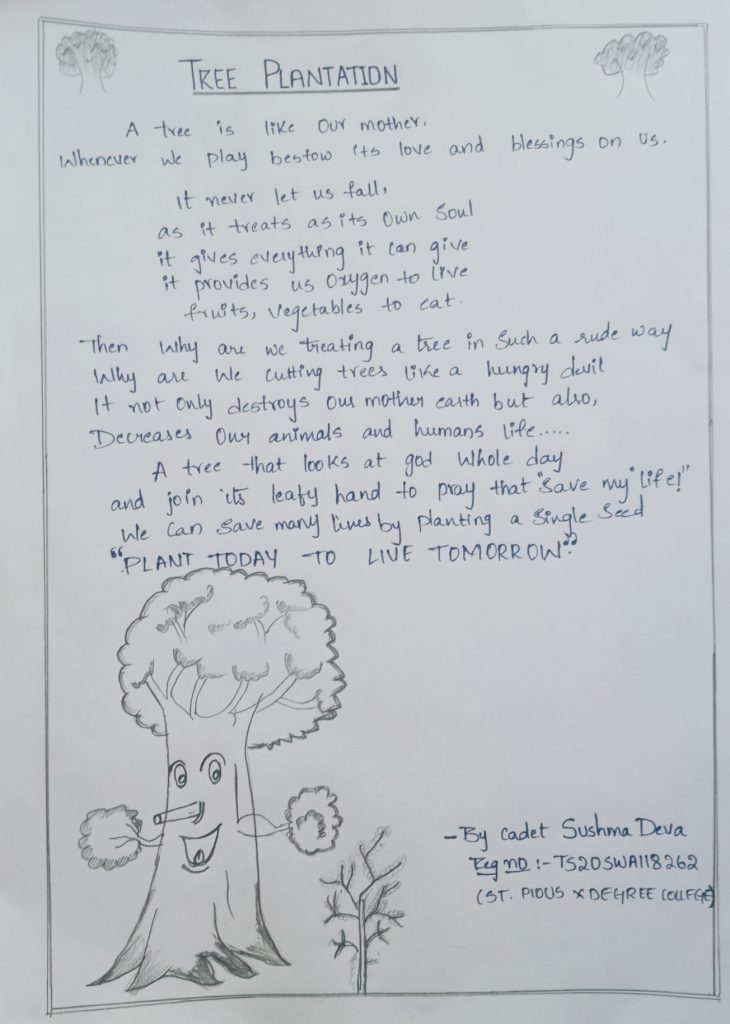 TREE PLANTATION
A tree is like our mother,
Whenever we play bestow its love and blessings on us.
It never let us fall,
as it treats as its own soul
it gives everything it can give
it provides us oxygen to live
fruits, vegetables to eat.
Then Why are we treating a tree in such a rude way
Why are we cutting trees like a hungry devil
It not only destroys our mother earth but also,
Decreases our animals and humans life.....
A tree that looks at god whole day
and join its leafy hand to pray that "save my" life!"
We can save many lives by planting a single seed
"PLANT TODAY TO LIVE TOMORROW"
- By cadet Sushma Deva
Reg no :- TS20SWA118262
(ST. PIOUS X DEGREE COLLEGE)